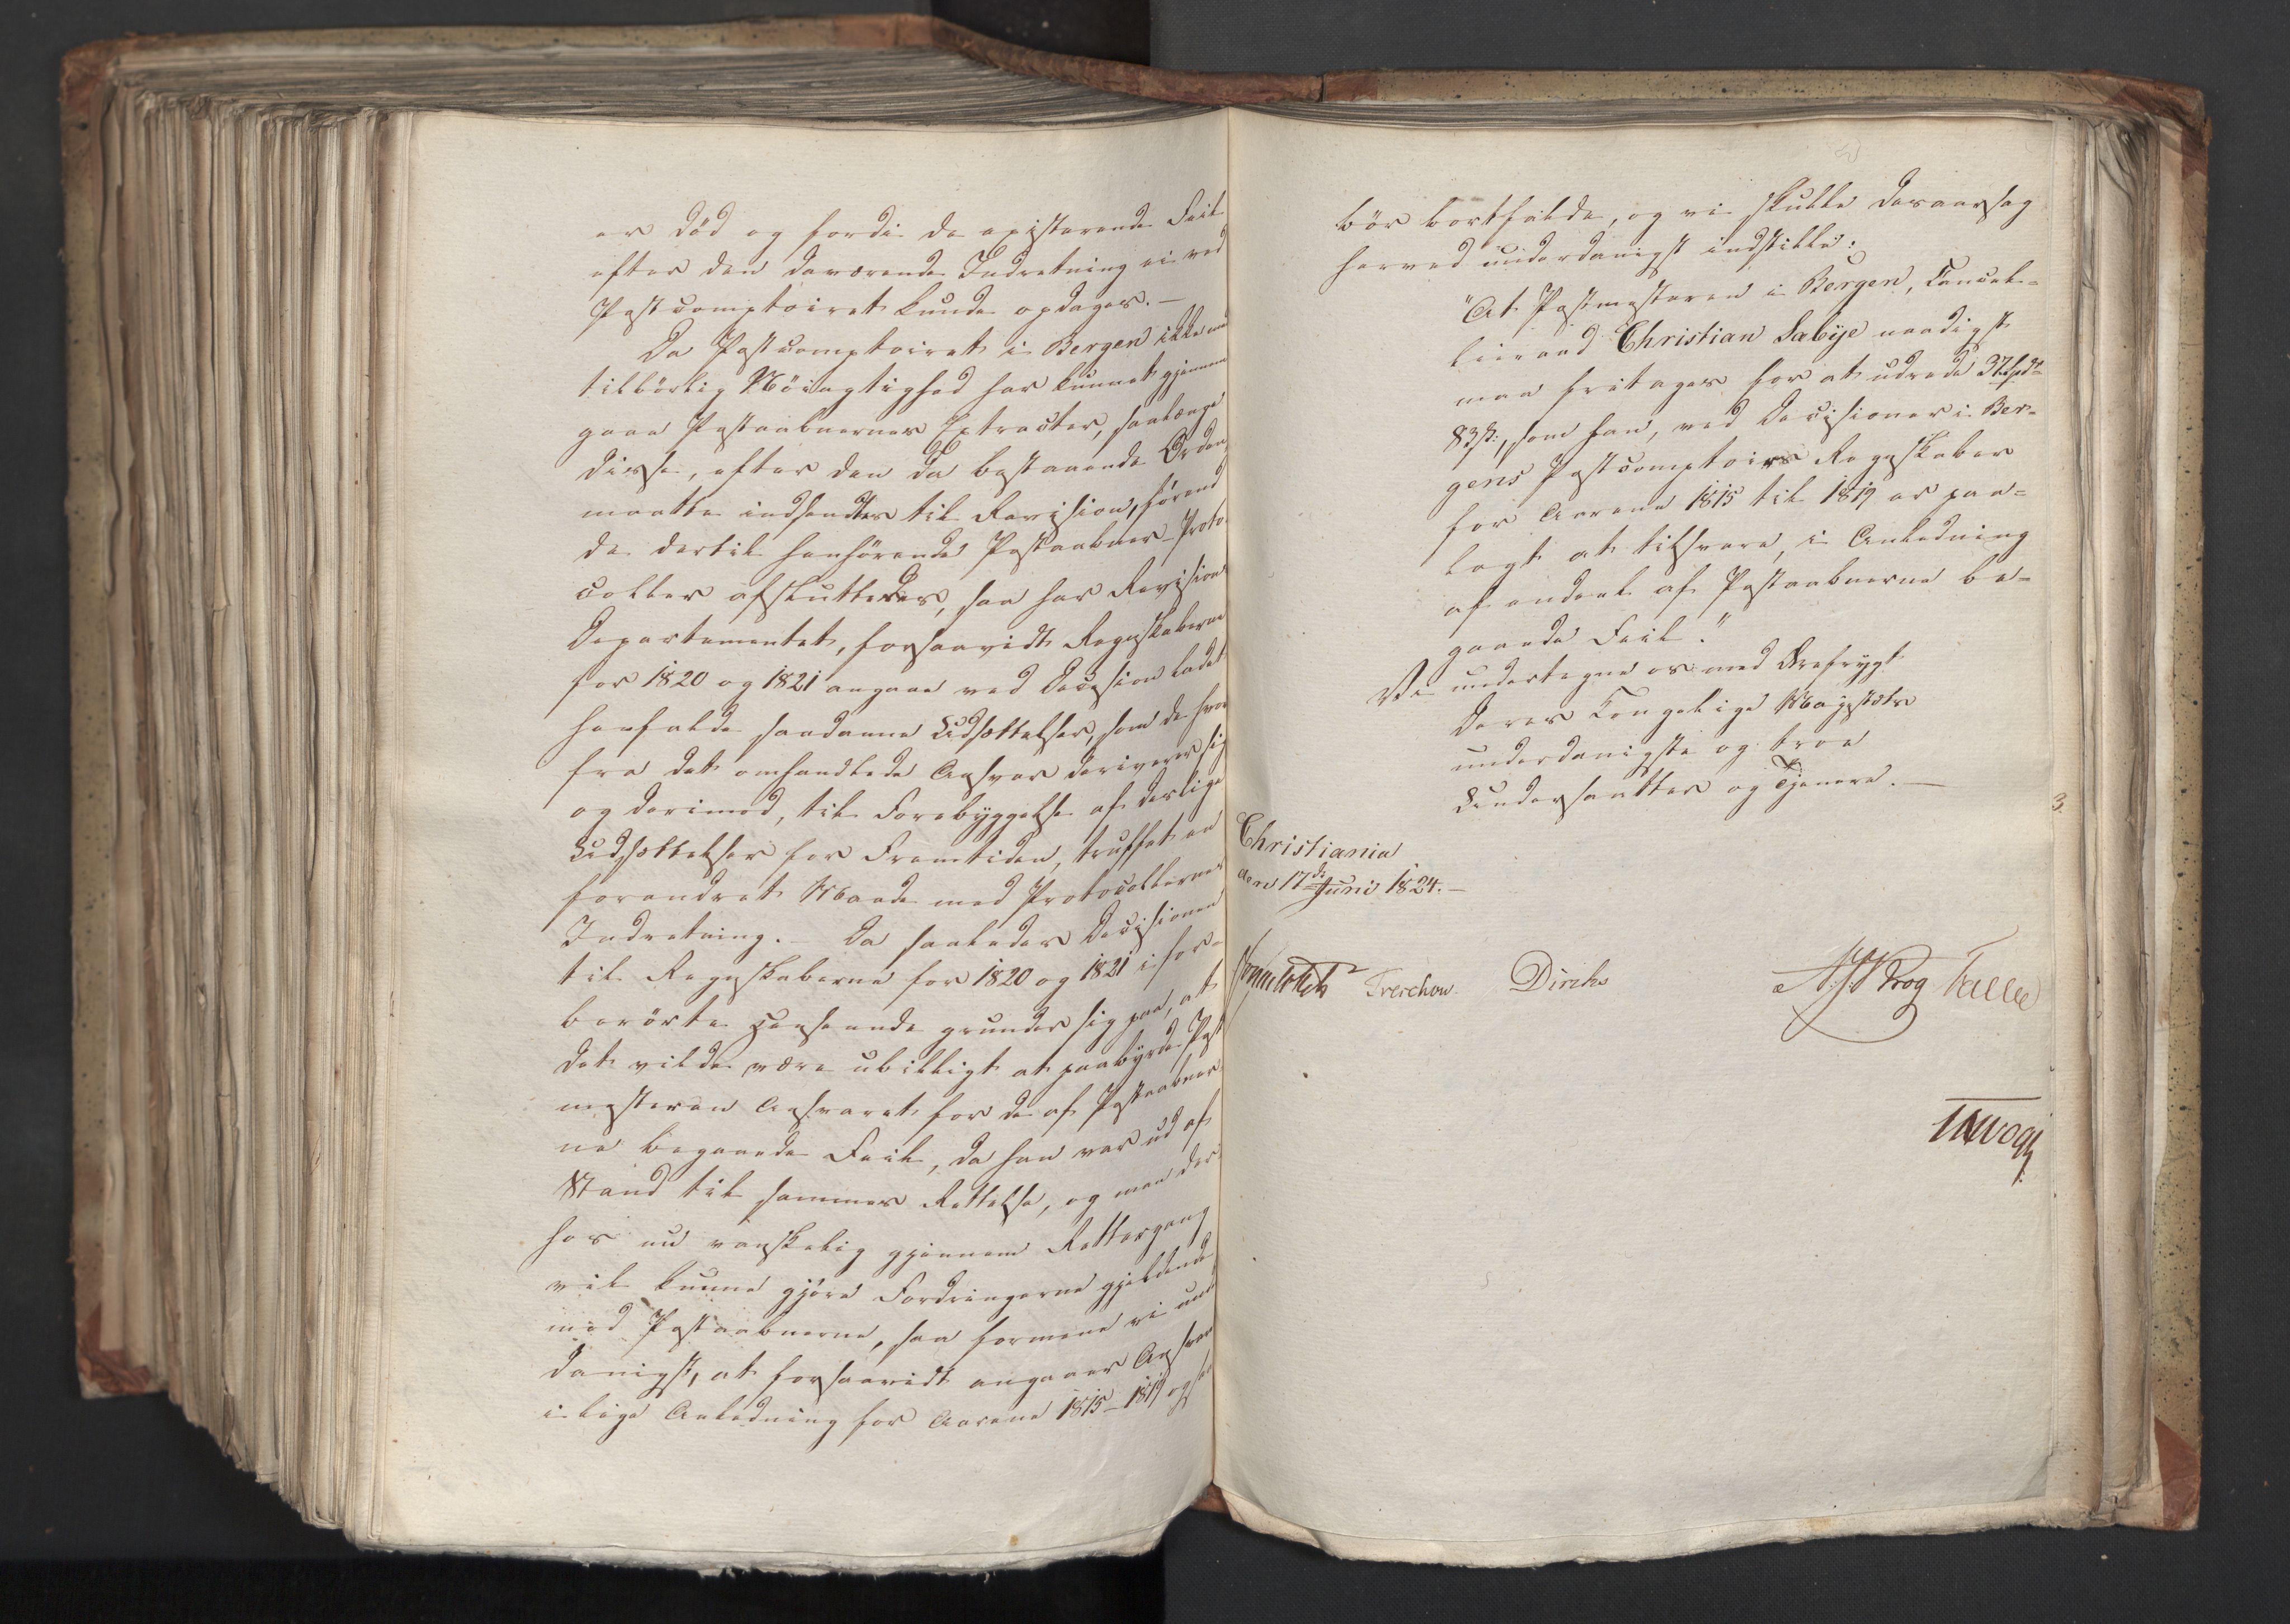 er död og fordi de existerende Feil
efter den daværende Indretning ei ved
Postcomptoiret kunde opdages.—
Da Postcomptoiret i Bergen ikke med
tilbörlig Nöiagtighed har kunnet gjennem
gaae Postaabnernes Extracter, saalænge
disse, efter den da bestaaende Orden,
maatte indsendtes til Revision, förend
de dertil henhörende Postaabner-Proto
coller afsluttedes, saa har Revisions
Departementet, forsaavidt Regnskaberne
for 1820 og 1821 angaae ved Decision ladet
henfalde saadanne Udsættelser, som de hvor
fra det omhandlede Ansvar deriverer sig
og derimod, til Forebyggelse af deslige
Udsættelser for Fremtiden, truffet en
forandret Maade med Protocollernes
Indretning.— Da saaledes Decisionen
til Regnskaberne for 1820 og 1821 i for-
berörte Henseende grunder sig paa, at
det vilde være ubilligt at paabyrde Post
mesteren Ansvaret for de af Postaabner
ne begaaede Feil, da han var ud af
Stand til sammes Rettelse, og man der
hos nu vanskelig gjennem Rettergang
vil kunne gjöre Fordringerne gjeldende
mod Postaabnerne, saa formene vi und
danigst, at forsaavidt angaaer Ansvar
i lige Anledning for Aarene 1815–1819 og saa
bör bortfalde, og vi skulle desaarsag
herved underdanigst indstille:
"At Postmesteren i Bergen, Cancel-
lieraad Christian Sabye naadigst
maa fritages for at udrede 37 Spd.
83 ß:, som han, ved Decisioner i Ber-
gens Postcomptoirs Regnskaber
for Aarene 1815 til 1819 er paa-
lagt at tilsvare, i Anledning
af endeel af Postaabnerne be-
gaaede Feil."
Vi undertegne os med Ærefrygt
Deres Kongelige Majestæts
underdanigste og troe
Undersaatter og Tjenere.—
3
Christiania
den 17de Juni 1824.—
Sommerhielm Treschow Diriks Krog Fasting